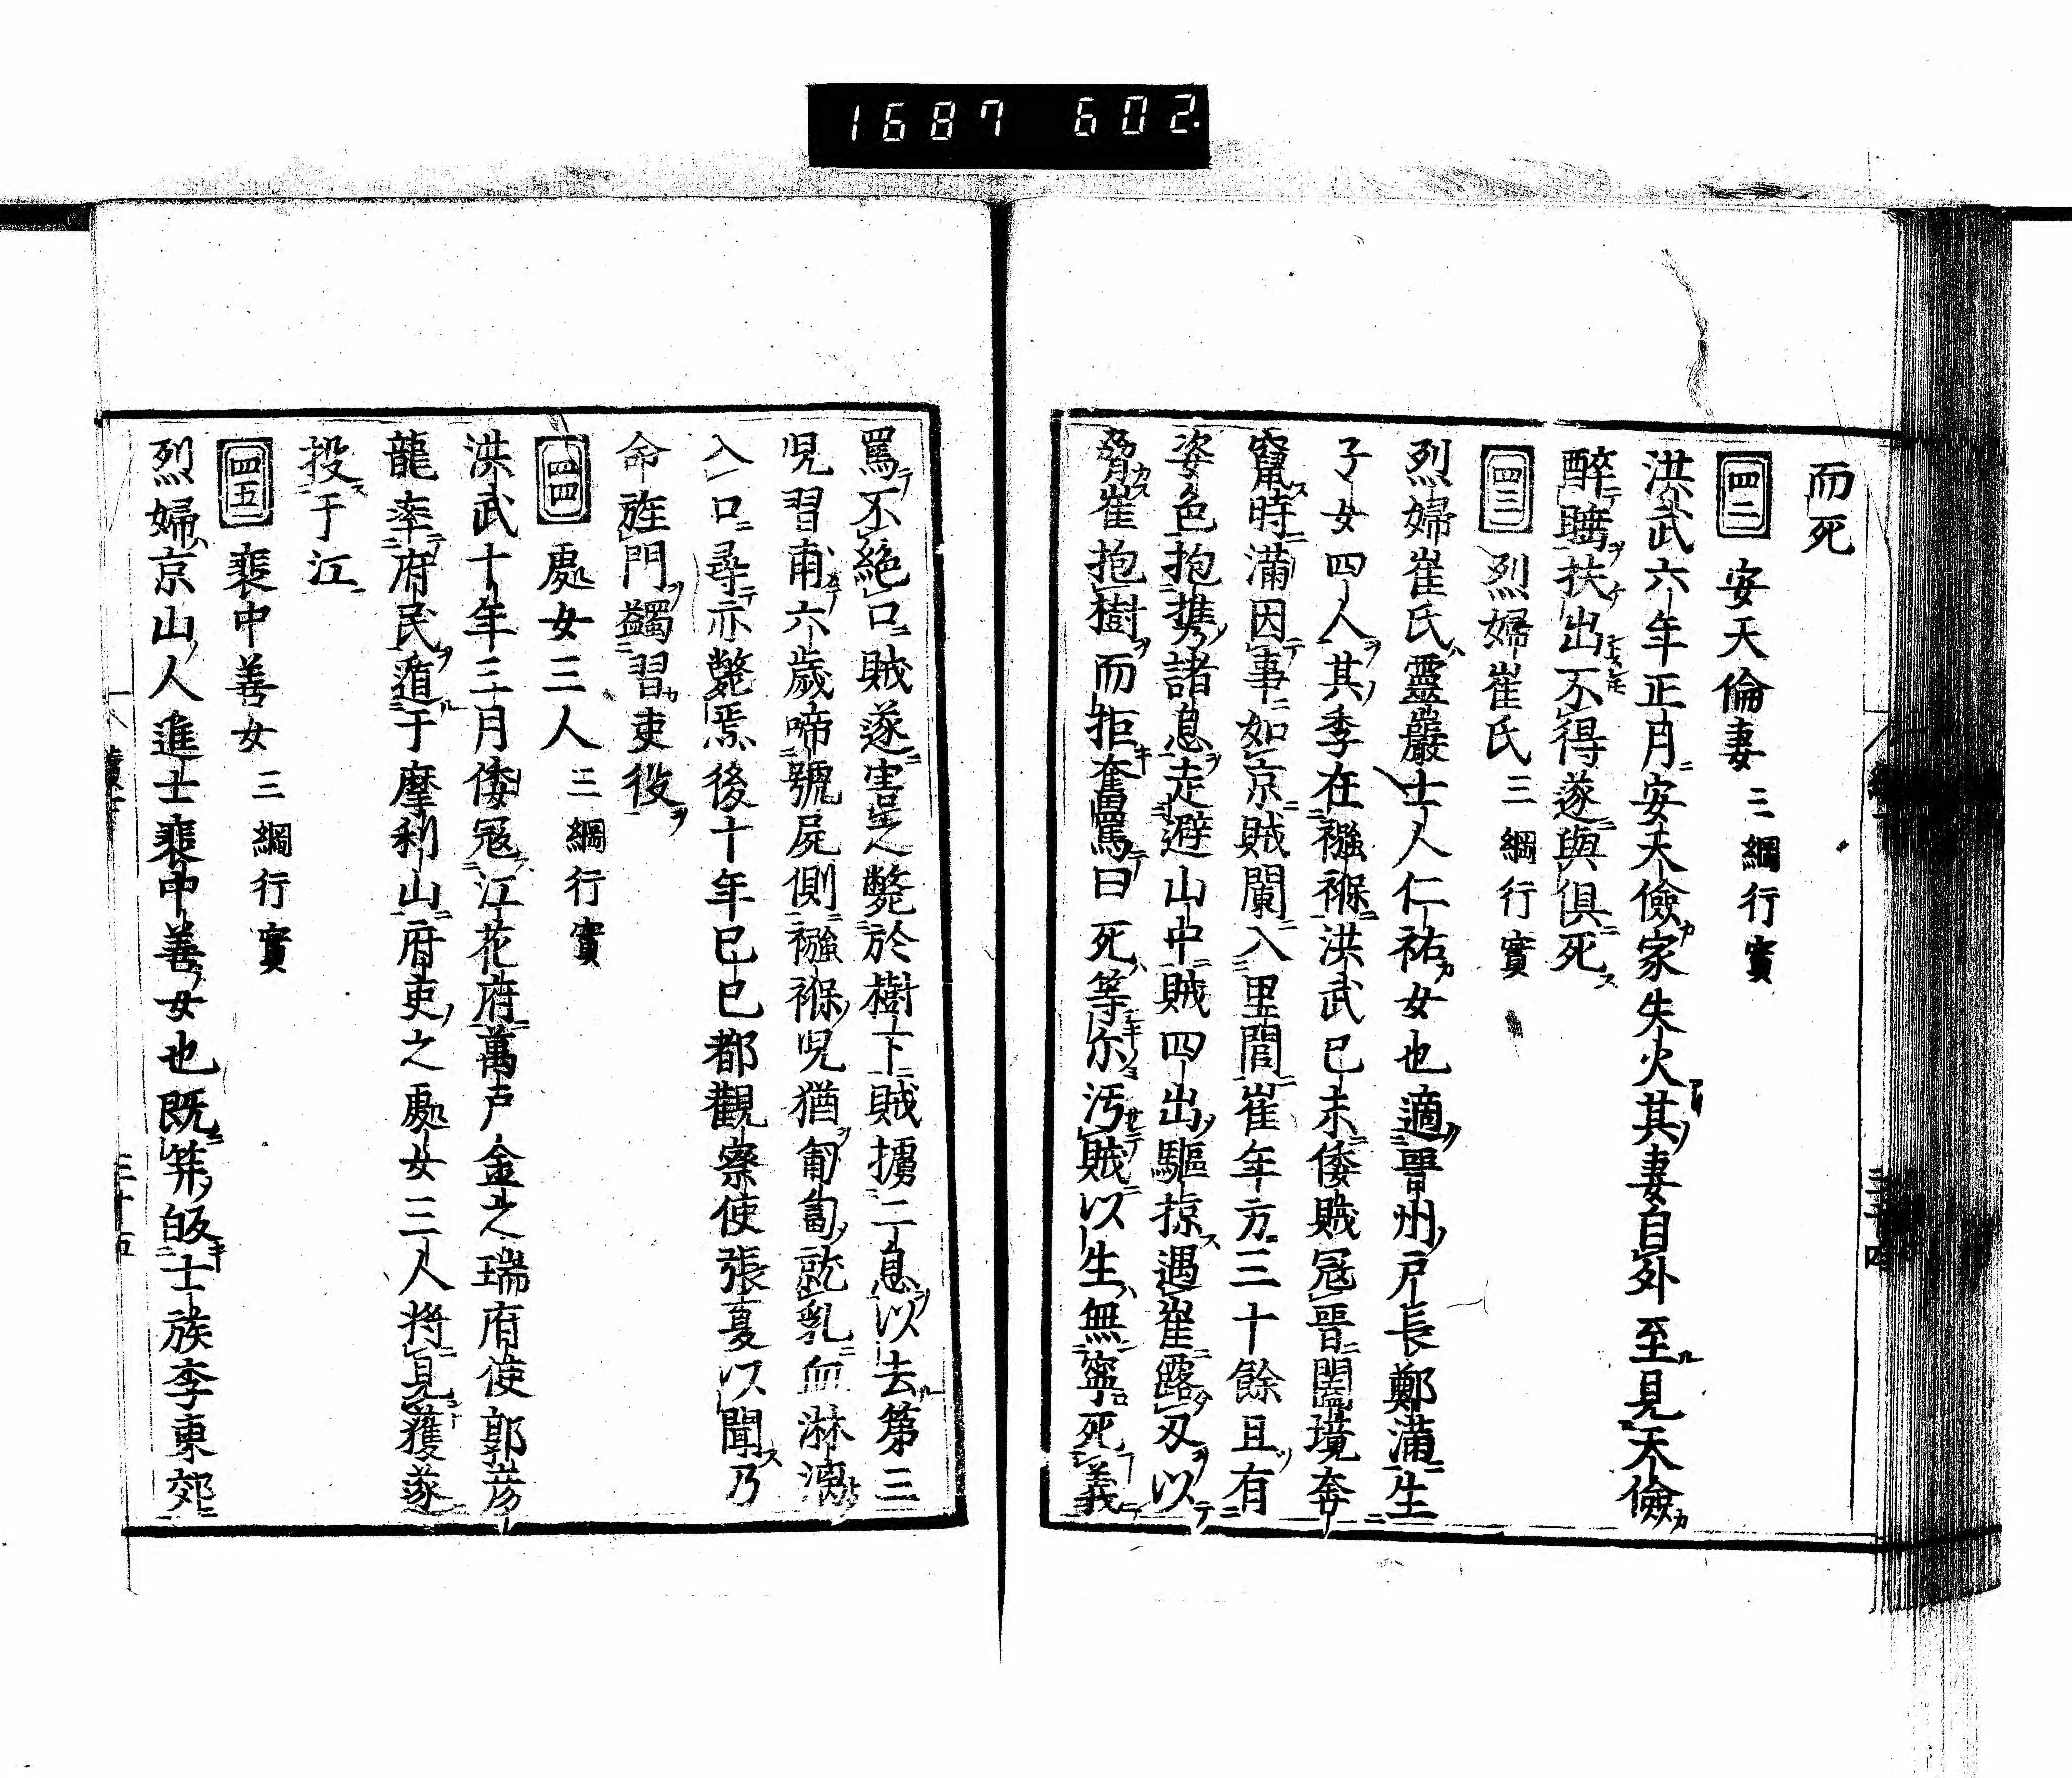 1687 602.
而死
四二 安天倫妻 三綱行實
洪武六年正月安天儉家失火其妻自外至見天儉
醉䏁扶出不得遂與俱死
四三 烈婦崔氏 三綱行實
烈婦崔氏靈巖士人仁祐女也適晋州戸長鄭滿生
子女四人其季在襁褓洪武已未倭賊冦晋闔境奔
竄時滿因事如京賊闌入里閭崔年方三十餘且有
姿色抱携諸息走避山中賊四出驅掠遇崔露刃以
脅崔抱樹而拒奮罵曰死等尓汚賊以生無寧死義
罵不絶口賊遂害之斃於樹下賊擄二息以去第三
児習甫六歳啼號屍側襁褓児猶匍匐就乳血淋漓
入口尋亦斃焉後十年已巳都觀察使張夏以聞乃
命旌門蠲習吏役
四四 處女三人 三綱行實
洪武十年三月倭冦江花府萬戸金之瑞府使郭彦
龍率府民遁于摩利山府吏之處女三人將見獲遂
投于江
四五 裴中善女 三綱行實
烈婦京山人進士裴中善女也既笄皈士族李東郊